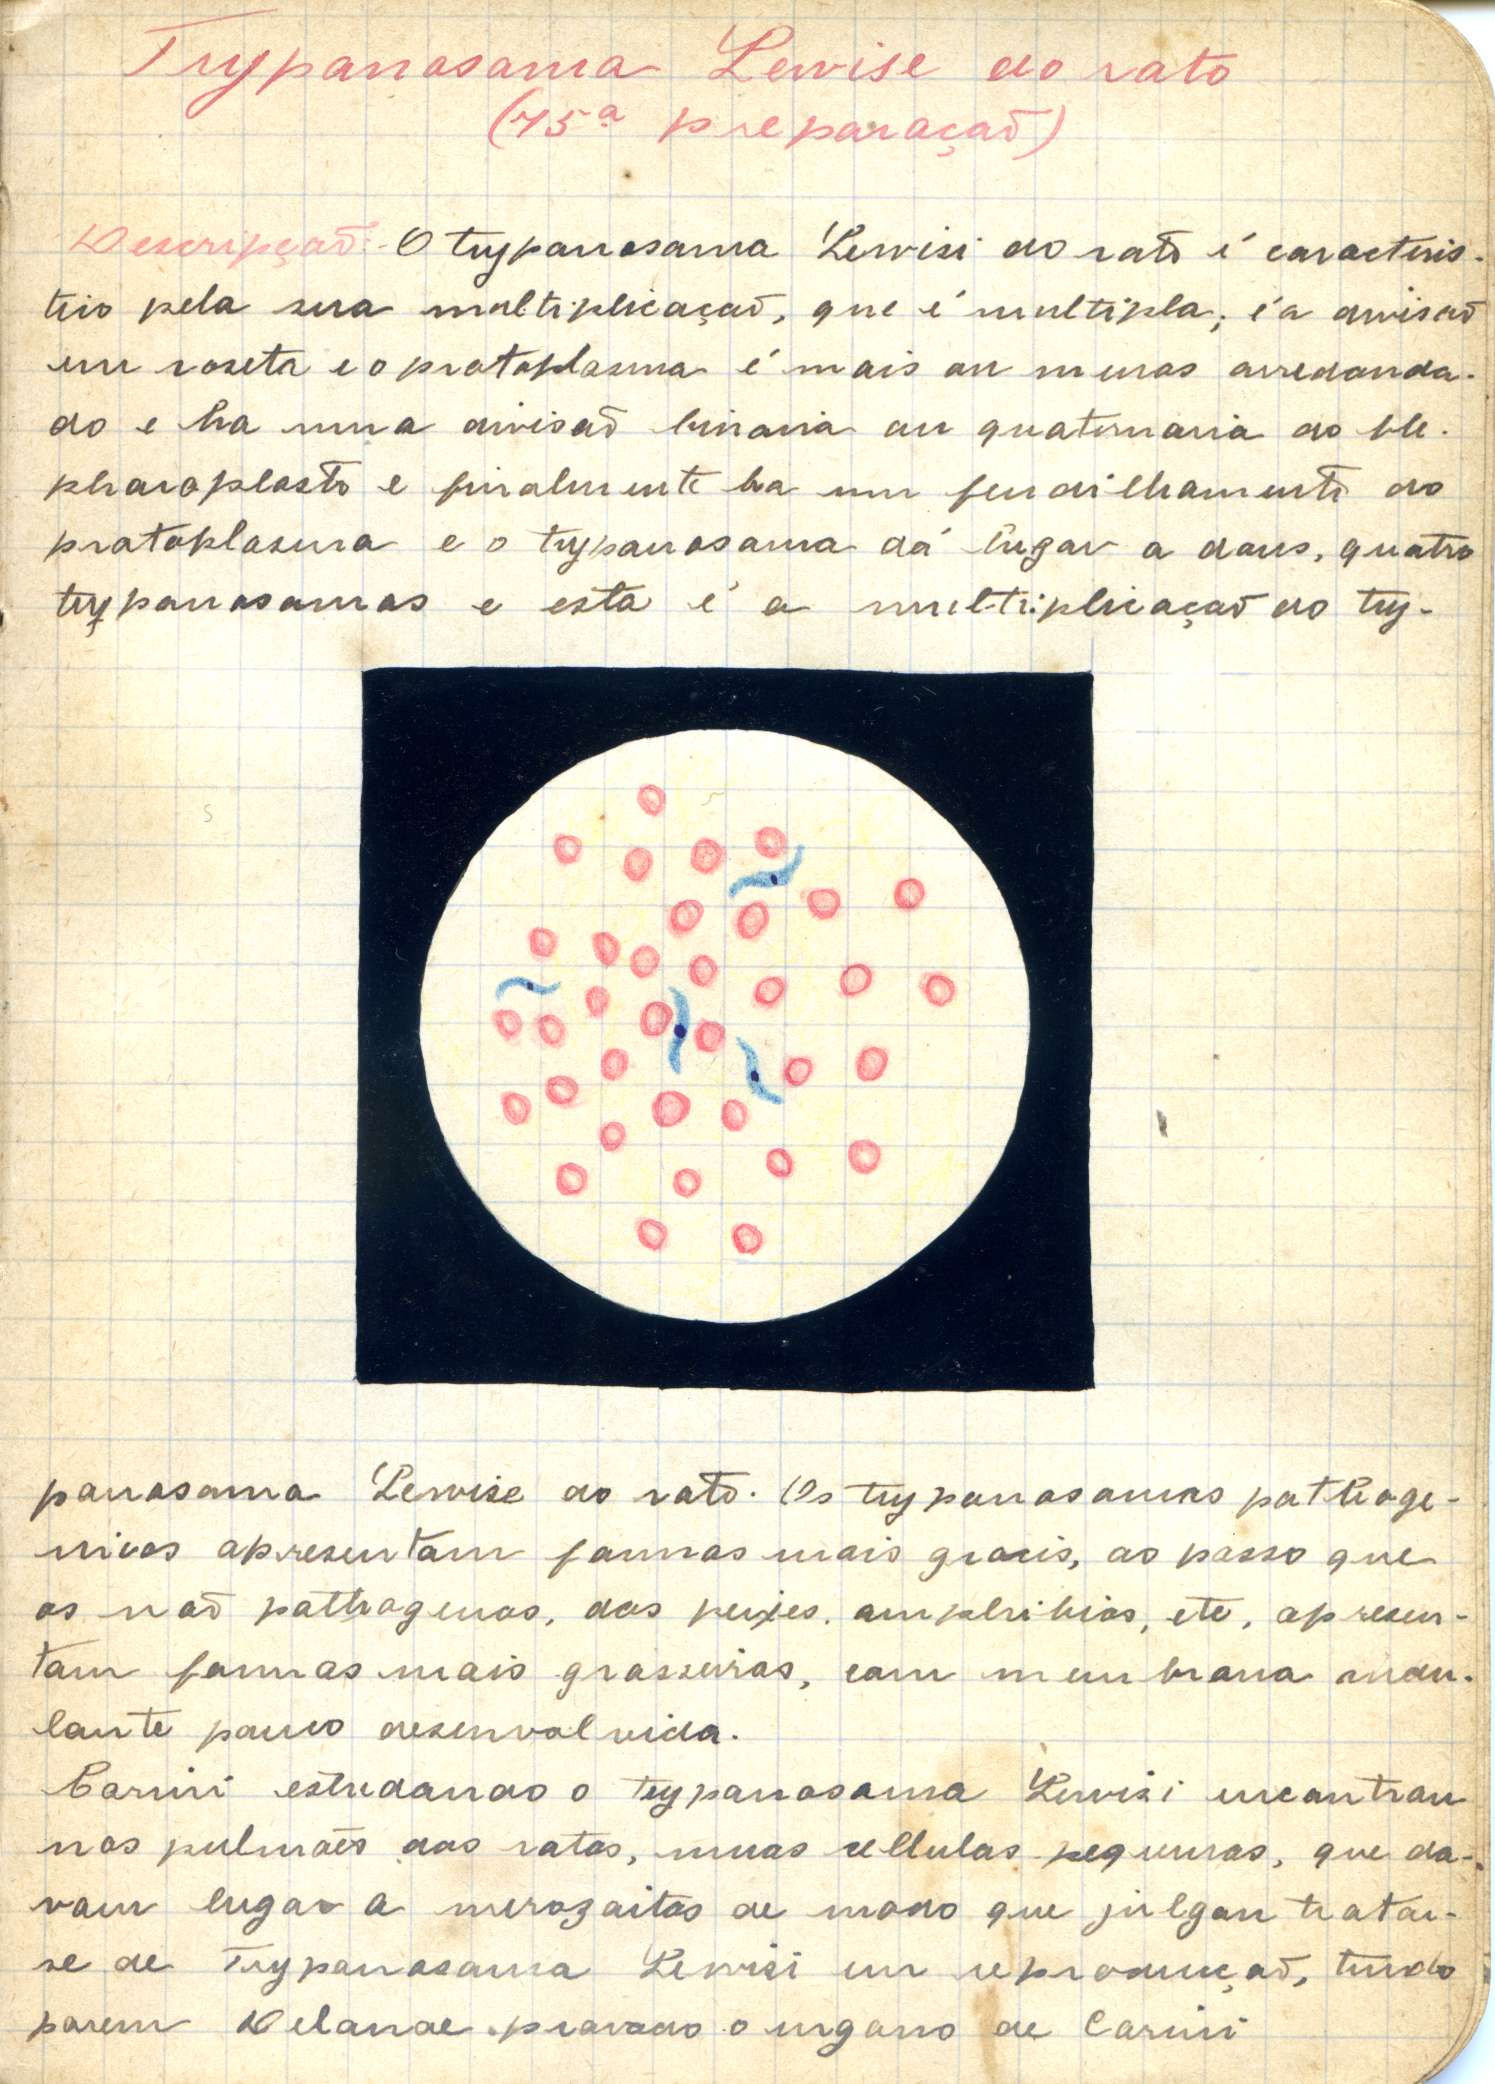 Trypanosoma Lewise do rato
(75ª preparação)
Descripção - O trypanosoma Lewisi do rato é caracteris-
tico pela sua multiplicação, que é multipla; é a divisão
em roseta e o protoplasma é mais ou menos arredonda-
do e ha uma divisão binaria ou quaternaria do ble-
pharoplasto e finalmente ha um fendilhamento do
protoplasma e o trypanosoma dá lugar a dous, quatro
trypanosomas e esta é a multiplicação do try-
panosoma Lewise do rato. Os trypanosomas pathoge-
nicos apresentam formas mais graceis, ao passo que
os não pathogenos, dos peixes, amphibios, etc, apresen-
tam formas mais grosseiras, com membrana ondu-
lante pouco desenvolvida.
Carini estudando o trypanosoma Lewisi encontrou
nos pulmões dos ratos, umas cellulas pequenas, que da-
vam lugar a merozoitos de modo que julgou tratar-
se de Trypanosoma Lewisi em reproducção, tendo
porem Delanoe provado o engano de Carini